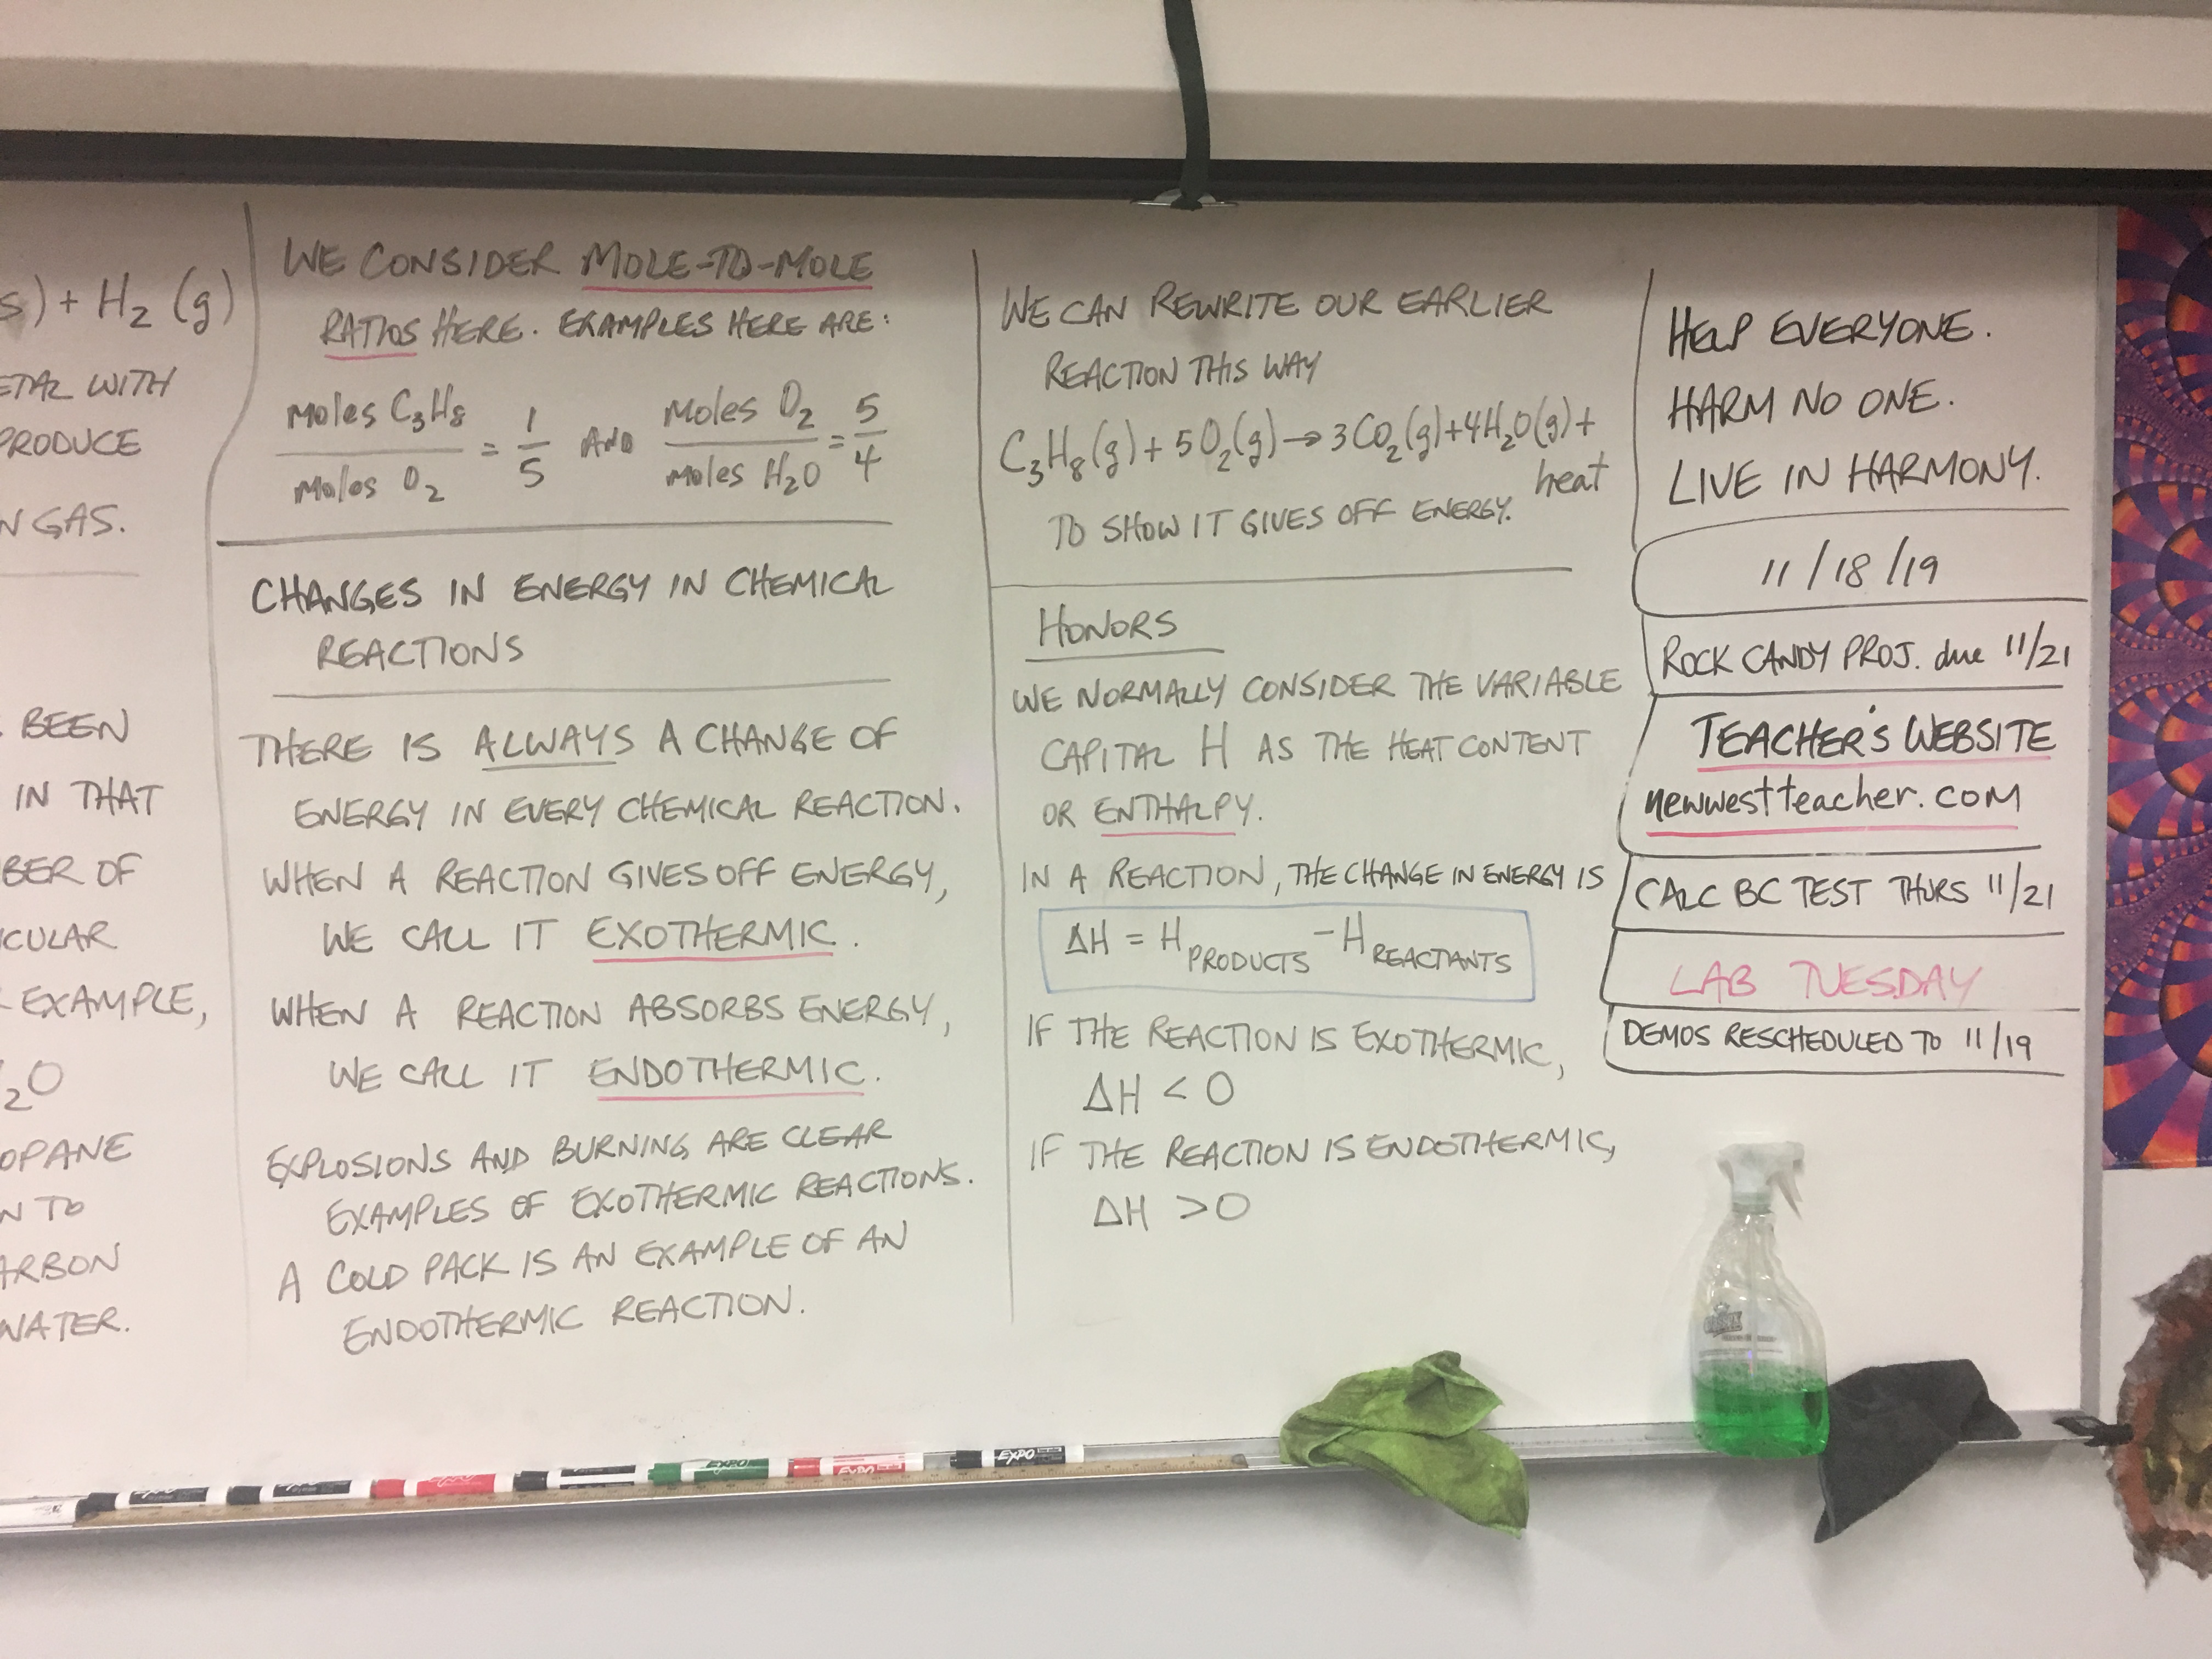 s) + H₂ (g)
ETAL WITH
PRODUCE
N GAS.
BEEN
IN THAT
BER OF
ICULAR
EXAMPLE,
₂O
OPANE
N TO
ARBON
WATER.
WE CONSIDER MOLE-TO-MOLE
RATIOS HERE. EXAMPLES HERE ARE:
moles C₃H₈ / moles O₂ = 1/5 AND moles O₂ / moles H₂O = 5/4
CHANGES IN ENERGY IN CHEMICAL
REACTIONS
THERE IS ALWAYS A CHANGE OF
ENERGY IN EVERY CHEMICAL REACTION.
WHEN A REACTION GIVES OFF ENERGY,
WE CALL IT EXOTHERMIC.
WHEN A REACTION ABSORBS ENERGY,
WE CALL IT ENDOTHERMIC.
EXPLOSIONS AND BURNING ARE CLEAR
EXAMPLES OF EXOTHERMIC REACTIONS.
A COLD PACK IS AN EXAMPLE OF AN
ENDOTHERMIC REACTION.
WE CAN REWRITE OUR EARLIER
REACTION THIS WAY
C₃H₈(g) + 5O₂(g) → 3CO₂(g) + 4H₂O(g) +
heat
TO SHOW IT GIVES OFF ENERGY.
HONORS
WE NORMALLY CONSIDER THE VARIABLE
CAPITAL H AS THE HEAT CONTENT
OR ENTHALPY.
IN A REACTION, THE CHANGE IN ENERGY IS
ΔH = H PRODUCTS - H REACTANTS
IF THE REACTION IS EXOTHERMIC,
ΔH < 0
IF THE REACTION IS ENDOTHERMIC,
ΔH > 0
HELP EVERYONE.
HARM NO ONE.
LIVE IN HARMONY.
11/18/19
ROCK CANDY PROJ. due 11/21
TEACHER'S WEBSITE
newwestteacher.com
CALC BC TEST THURS 11/21
LAB TUESDAY
DEMOS RESCHEDULED TO 11/19
EXPO
EXPO
EXPO